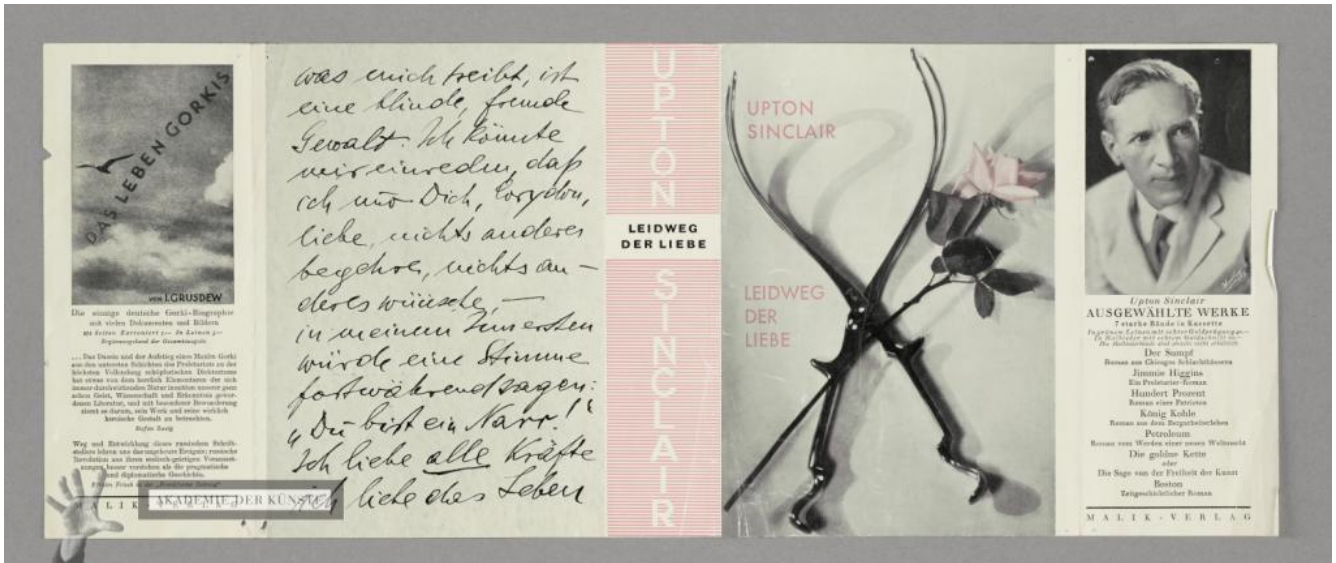 DAS LEBEN GORKIS
VON I. GRUSDEW
Die einzige deutsche Gorki-Biographie
mit vielen Dokumenten und Bildern
Ergänzungsband der Gesamtausgabe
... Das Dasein und der Aufstieg eines Maxim Gorki
aus den untersten Schichten des Proletariats zu der
höchsten Vollendung schöpferischen Dichtertums
hat etwas von dem herrlich Elementaren der sich
immer durchwirkenden Natur inmitten unserer ganz
schon Geist, Wissenschaft und Erkenntnis gewor-
denen Literatur, und mit besonderer Bewunderung
ziemt es darum, sein Werk und seine wirklich
heroische Gestalt zu betrachten.
Stefan Zweig
Weg und Entwicklung dieses russischen Schrift-
stellers lehren uns das ungeheure Ereignis; russische
Revolution aus ihren seelisch-geistigen Vorausset-
zungen besser verstehen als die pragmatische
und diplomatische Geschichte.
Efraim Frisch in der „Frankfurter Zeitung“
MALIK
AKADEMIE DER KÜNSTE
was mich treibt, ist
eine blinde, fremde
Gewalt. Ich könnte
mir einreden, daß
ich nur Dich, Corydon,
liebe, nichts anderes
begehre, nichts an-
deres wünsche, —
in meinem Innersten
würde eine Stimme
fortwährend sagen:
„Du bist ein Narr!“
Ich liebe alle Kräfte
ich liebe das Leben
UPTON
LEIDWEG
DER LIEBE
SINCLAIR
UPTON
SINCLAIR
LEIDWEG
DER
LIEBE
Upton Sinclair
AUSGEWÄHLTE WERKE
7 starke Bände in Kassette
Der Sumpf
Roman aus Chicagos Schlachthäusern
Jimmie Higgins
Ein Proletarier-Roman
Hundert Prozent
Roman eines Patrioten
König Kohle
Roman aus dem Bergarbeiterleben
Petroleum
Roman vom Werden einer neuen Weltmacht
Die goldne Kette
oder
Die Sage von der Freiheit der Kunst
Boston
Zeitgeschichtlicher Roman
MALIK-VERLAG